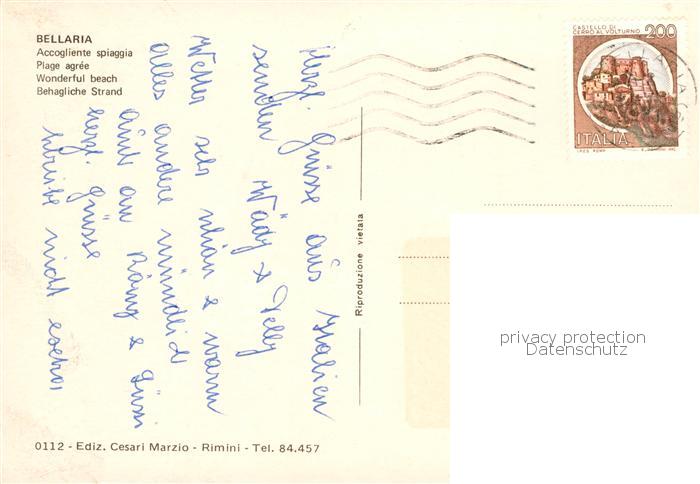 BELLARIA
Accogliente spiaggia
Plage agrée
Wonderful beach
Behagliche Strand
CASTELLO DI
CERRO AL VOLTURNO
200
ITALIA
Herzl. Grüsse aus Italien
senden Wädy & Nelly
Wetter sehr schön & warm
alles andere mündlich
Grüssi
herzl. Grüsse
nicht
Riproduzione vietata
privacy protection
Datenschutz
0112 - Ediz. Cesari Marzio - Rimini - Tel. 84.457